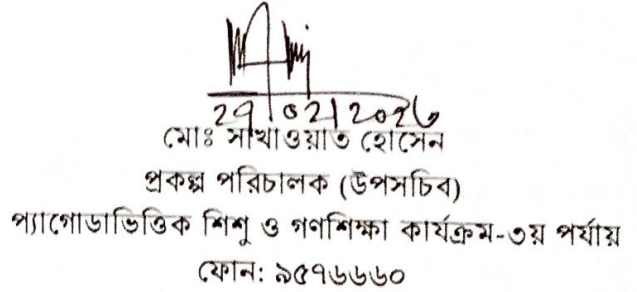 মোঃ সাখাওয়াত হোসেন
প্রকল্প পরিচালক (উপসচিব)
প্যাগোডাভিত্তিক শিশু ও গণশিক্ষা কার্যক্রম-৩য় পর্যায়
ফোন: ৯৫৭৬৬৬০